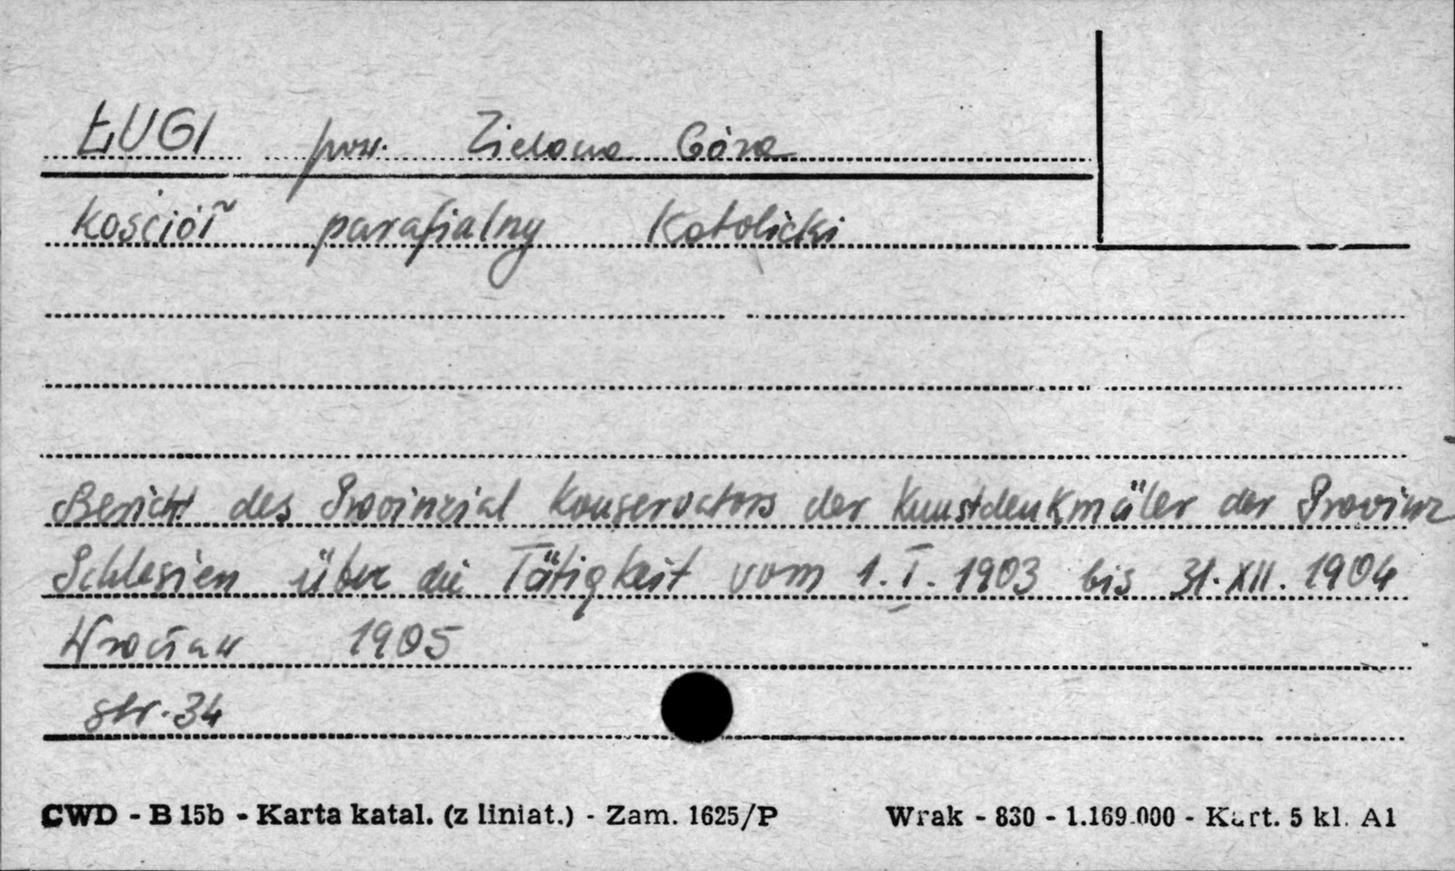 ŁUGI pow. Zielona Góra
kościół parafialny Katolicki
Bericht des Provinzial Konservators der Kunstdenkmäler der Provinz
Schlesien über die Tätigkeit vom 1. I. 1903 bis 31. XII. 1904
Wrocław 1905
str. 34
CWD - B 15b - Karta katal. (z liniat.) - Zam. 1625/P Wrak - 830 - 1.169.000 - Kart. 5 kl. A1